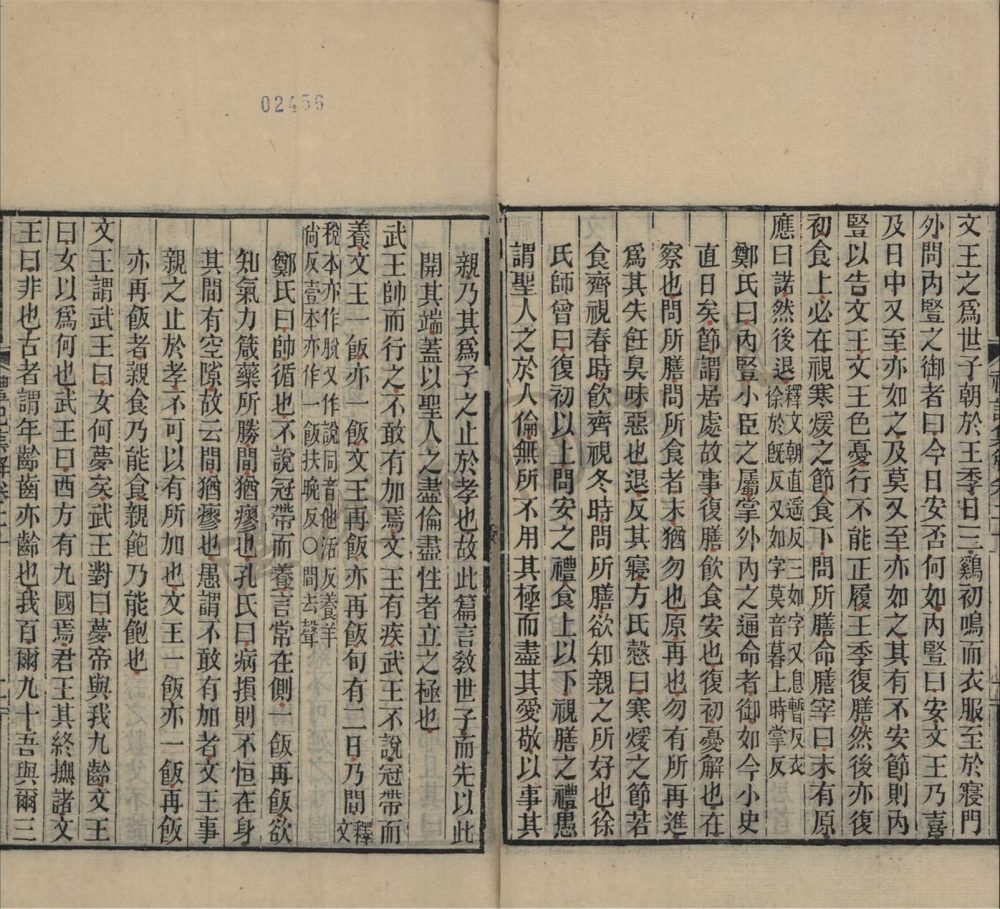 文王之爲世子朝於王季日三鷄初鳴而衣服至於寢門
外問內豎之御者曰今日安否何如內豎曰安文王乃喜
及日中又至亦如之及莫又至亦如之其有不安節則內
豎以告文王文王色憂行不能正履王季復膳然後亦復
初食上必在視寒煖之節食下問所膳命膳宰曰末有原
應曰諾然後退釋文朝直遥反三如字又息暫反衣
徐於旣反又如字莫音暮上時掌反
鄭氏曰內豎小臣之屬掌外內之通命者御如今小史
直日矣節謂居處故事復膳飲食安也復初憂解也在
察也問所膳問所食者末猶勿也原再也勿有所再進
爲其失飪臭味惡也退反其寢方氏慤曰寒煖之節若
食齊視春時飲齊視冬時問所膳欲知親之所好也徐
氏師曾曰復初以上問安之禮食上以下視膳之禮愚
謂聖人之於人倫無所不用其極而盡其愛敬以事其
親乃其爲子之止於孝也故此篇言敎世子而先以此
開其端蓋以聖人之盡倫盡性者立之極也
武王帥而行之不敢有加焉文王有疾武王不說冠帶而
養文王一飯亦一飯文王再飯亦再飯旬有二日乃間釋
文
稅本亦作脫又作說同音他活反養羊
尙反壹本亦作一飯扶晚反○間去聲
鄭氏曰帥循也不說冠帶而養言常在側一飯再飯欲
知氣力箴藥所勝間猶瘳也孔氏曰病損則不恒在身
其間有空隙故云間猶瘳也愚謂不敢有加者文王事
親之止於孝不可以有所加也文王一飯亦一飯再飯
亦再飯者親食乃能食親飽乃能飽也
文王謂武王曰女何夢矣武王對曰夢帝與我九齡文王
曰女以爲何也武王曰西方有九國焉君王其終撫諸文
王曰非也古者謂年齡齒亦齡也我百爾九十吾與爾三
02456